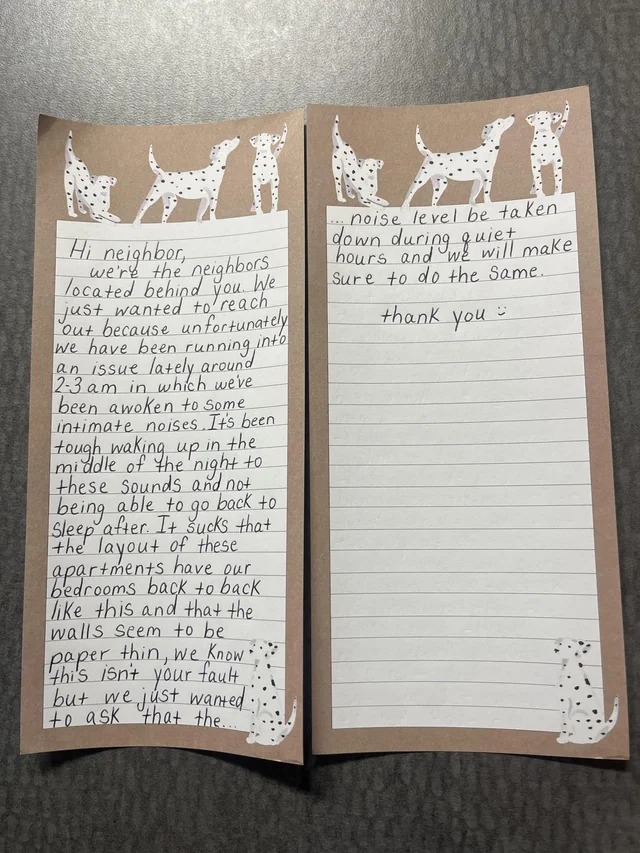 Hi neighbor,
we're the neighbors
located behind you. We
just wanted to reach
out because unfortunately
we have been running into
an issue lately around
2-3 am in which we've
been awoken to some
intimate noises. It's been
tough waking up in the
middle of the night to
these sounds and not
being able to go back to
sleep after. It sucks that
the layout of these
apartments have our
bedrooms back to back
like this and that the
walls seem to be
paper thin, we know
this isn't your fault
but we just wanted
to ask that the...
... noise level be taken
down during quiet
hours and we will make
sure to do the same.
thank you :)